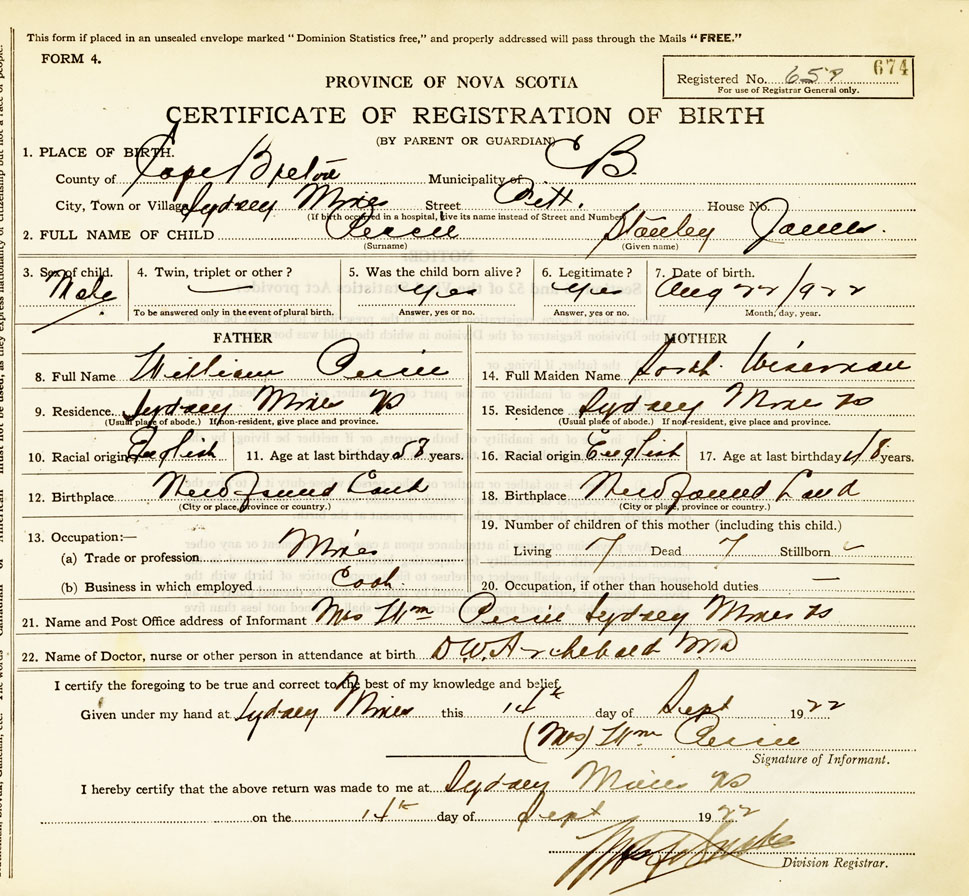 This form if placed in an unsealed envelope marked “Dominion Statistics free,” and properly addressed will pass through the Mails “FREE.”
FORM 4.
674
PROVINCE OF NOVA SCOTIA
Registered No. 658
For use of Registrar General only.
CERTIFICATE OF REGISTRATION OF BIRTH
(BY PARENT OR GUARDIAN)
1. PLACE OF BIRTH.
County of Cape Breton Municipality of C B.
City, Town or Village Sydney Mines Street Pitt. House No.
(If birth occurred in a hospital, give its name instead of Street and Number)
2. FULL NAME OF CHILD Stanley James.
(Surname) (Given name)
3. Sex of child. 4. Twin, triplet or other? 5. Was the child born alive? 6. Legitimate? 7. Date of birth.
Male — yes yes Aug 22/922
To be answered only in the event of plural birth. Answer, yes or no. Answer, yes or no. Month, day, year.
FATHER MOTHER
8. Full Name William 14. Full Maiden Name Wiseman
9. Residence Sydney Mines NS 15. Residence Sydney Mines NS
(Usual place of abode.) If non-resident, give place and province. (Usual place of abode.) If non-resident, give place and province.
10. Racial origin English 11. Age at last birthday years. 16. Racial origin English 17. Age at last birthday 48 years.
12. Birthplace Newfound Land 18. Birthplace Newfound Land
(City or place, province or country.) (City or place, province or country.)
19. Number of children of this mother (including this child.)
13. Occupation:—
(a) Trade or profession Living 7 Dead 7 Stillborn
(b) Business in which employed 20. Occupation, if other than household duties —
21. Name and Post Office address of Informant Mrs Wm Sydney Mines NS
22. Name of Doctor, nurse or other person in attendance at birth D.W. Archibald MD
I certify the foregoing to be true and correct to the best of my knowledge and belief.
Given under my hand at Sydney Mines this 14th day of Sept 1922
(Mrs) Wm
Signature of Informant.
I hereby certify that the above return was made to me at Sydney Mines NS
on the 14th day of Sept 1922
Division Registrar.